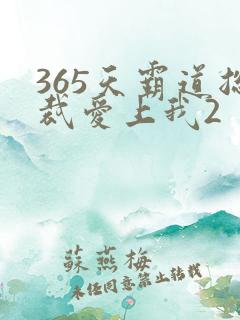 365天霸道
裁愛上我2
蘇燕梅
未经同意禁止转载